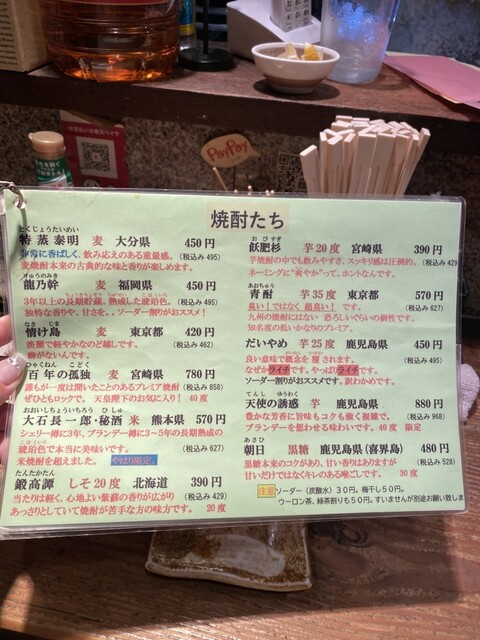 PayPay
焼酎たち
とくじょうたいめい
特蒸泰明 麦 大分県 450円
非常に香ばしく、飲み応えのある重量感。(税込み495)
麦焼酎本来の古典的な味と香りが楽しめます。
龍乃幹 麦 福岡県 450円
3年以上の長期貯蔵。熟成した琥珀色。(税込み495)
独特な香りや、甘さを。。ソーダ割りがおススメ！
なさ じま
情け島 麦 東京都 420円
麦麹で軽やかなのど越しです。(税込み462)
癖がないんです。
ひゃくねん こどく
百年の孤独 麦 宮崎県 780円
誰もが一度は聞いたことのあるプレミア焼酎(税込み858)
ぜひともロックで。天皇陛下のお気に入り！ 40度
おおいしちょういちろう ひしゅ
大石長一郎・秘酒 米 熊本県 570円
シェリー樽に3年、ブランデー樽に3～5年の長期熟成の
琥珀色で本当に美味いです。(税込み627)
米焼酎を超えました。 やはり限定。
たんたかたん
鍛高譚 しそ20度 北海道 390円
当たりは軽く、心地よい紫蘇の香りが広がり(税込み429)
あっさりとしていて焼酎が苦手な方の味方です。 20度
おびすぎ
飫肥杉 芋20度 宮崎県 390円
芋焼酎の中でも飲みやすさ、スッキリ感は圧倒的。(税込み429
ネーミングに"爽やか"って、ホントなんです。
あおちゅう
青酎 芋35度 東京都 570円
臭い！ではなく 超臭い！ です。(税込み627)
九州の焼酎にはない 恐ろしいぐらいの個性です。
知名度の低いかなりのプレミア。
だいやめ 芋25度 鹿児島県 450円
良い意味で概念を 覆されます。(税込み495)
なぜかライチです。やっぱりライチです。
ソーダー割りがおススメです。訳わかめです。
てんし ゆうわく
天使の誘惑 芋 鹿児島県 880円
豊かな芳香に旨味もコクも強く複雑で。(税込み968)
ブランデーを想わせる味わいです。 40度 限定
あさひ
朝日 黒糖 鹿児島県(喜界島) 480円
黒糖本来のコクがあり、甘い香りはありますが(税込み528)
甘いだけではなくキレのある喉ごしです。 30度
注意 ソーダー（炭酸水）30円。梅干し50円。
ウーロン茶、緑茶割りも50円。すいませんが別途お願い致しま